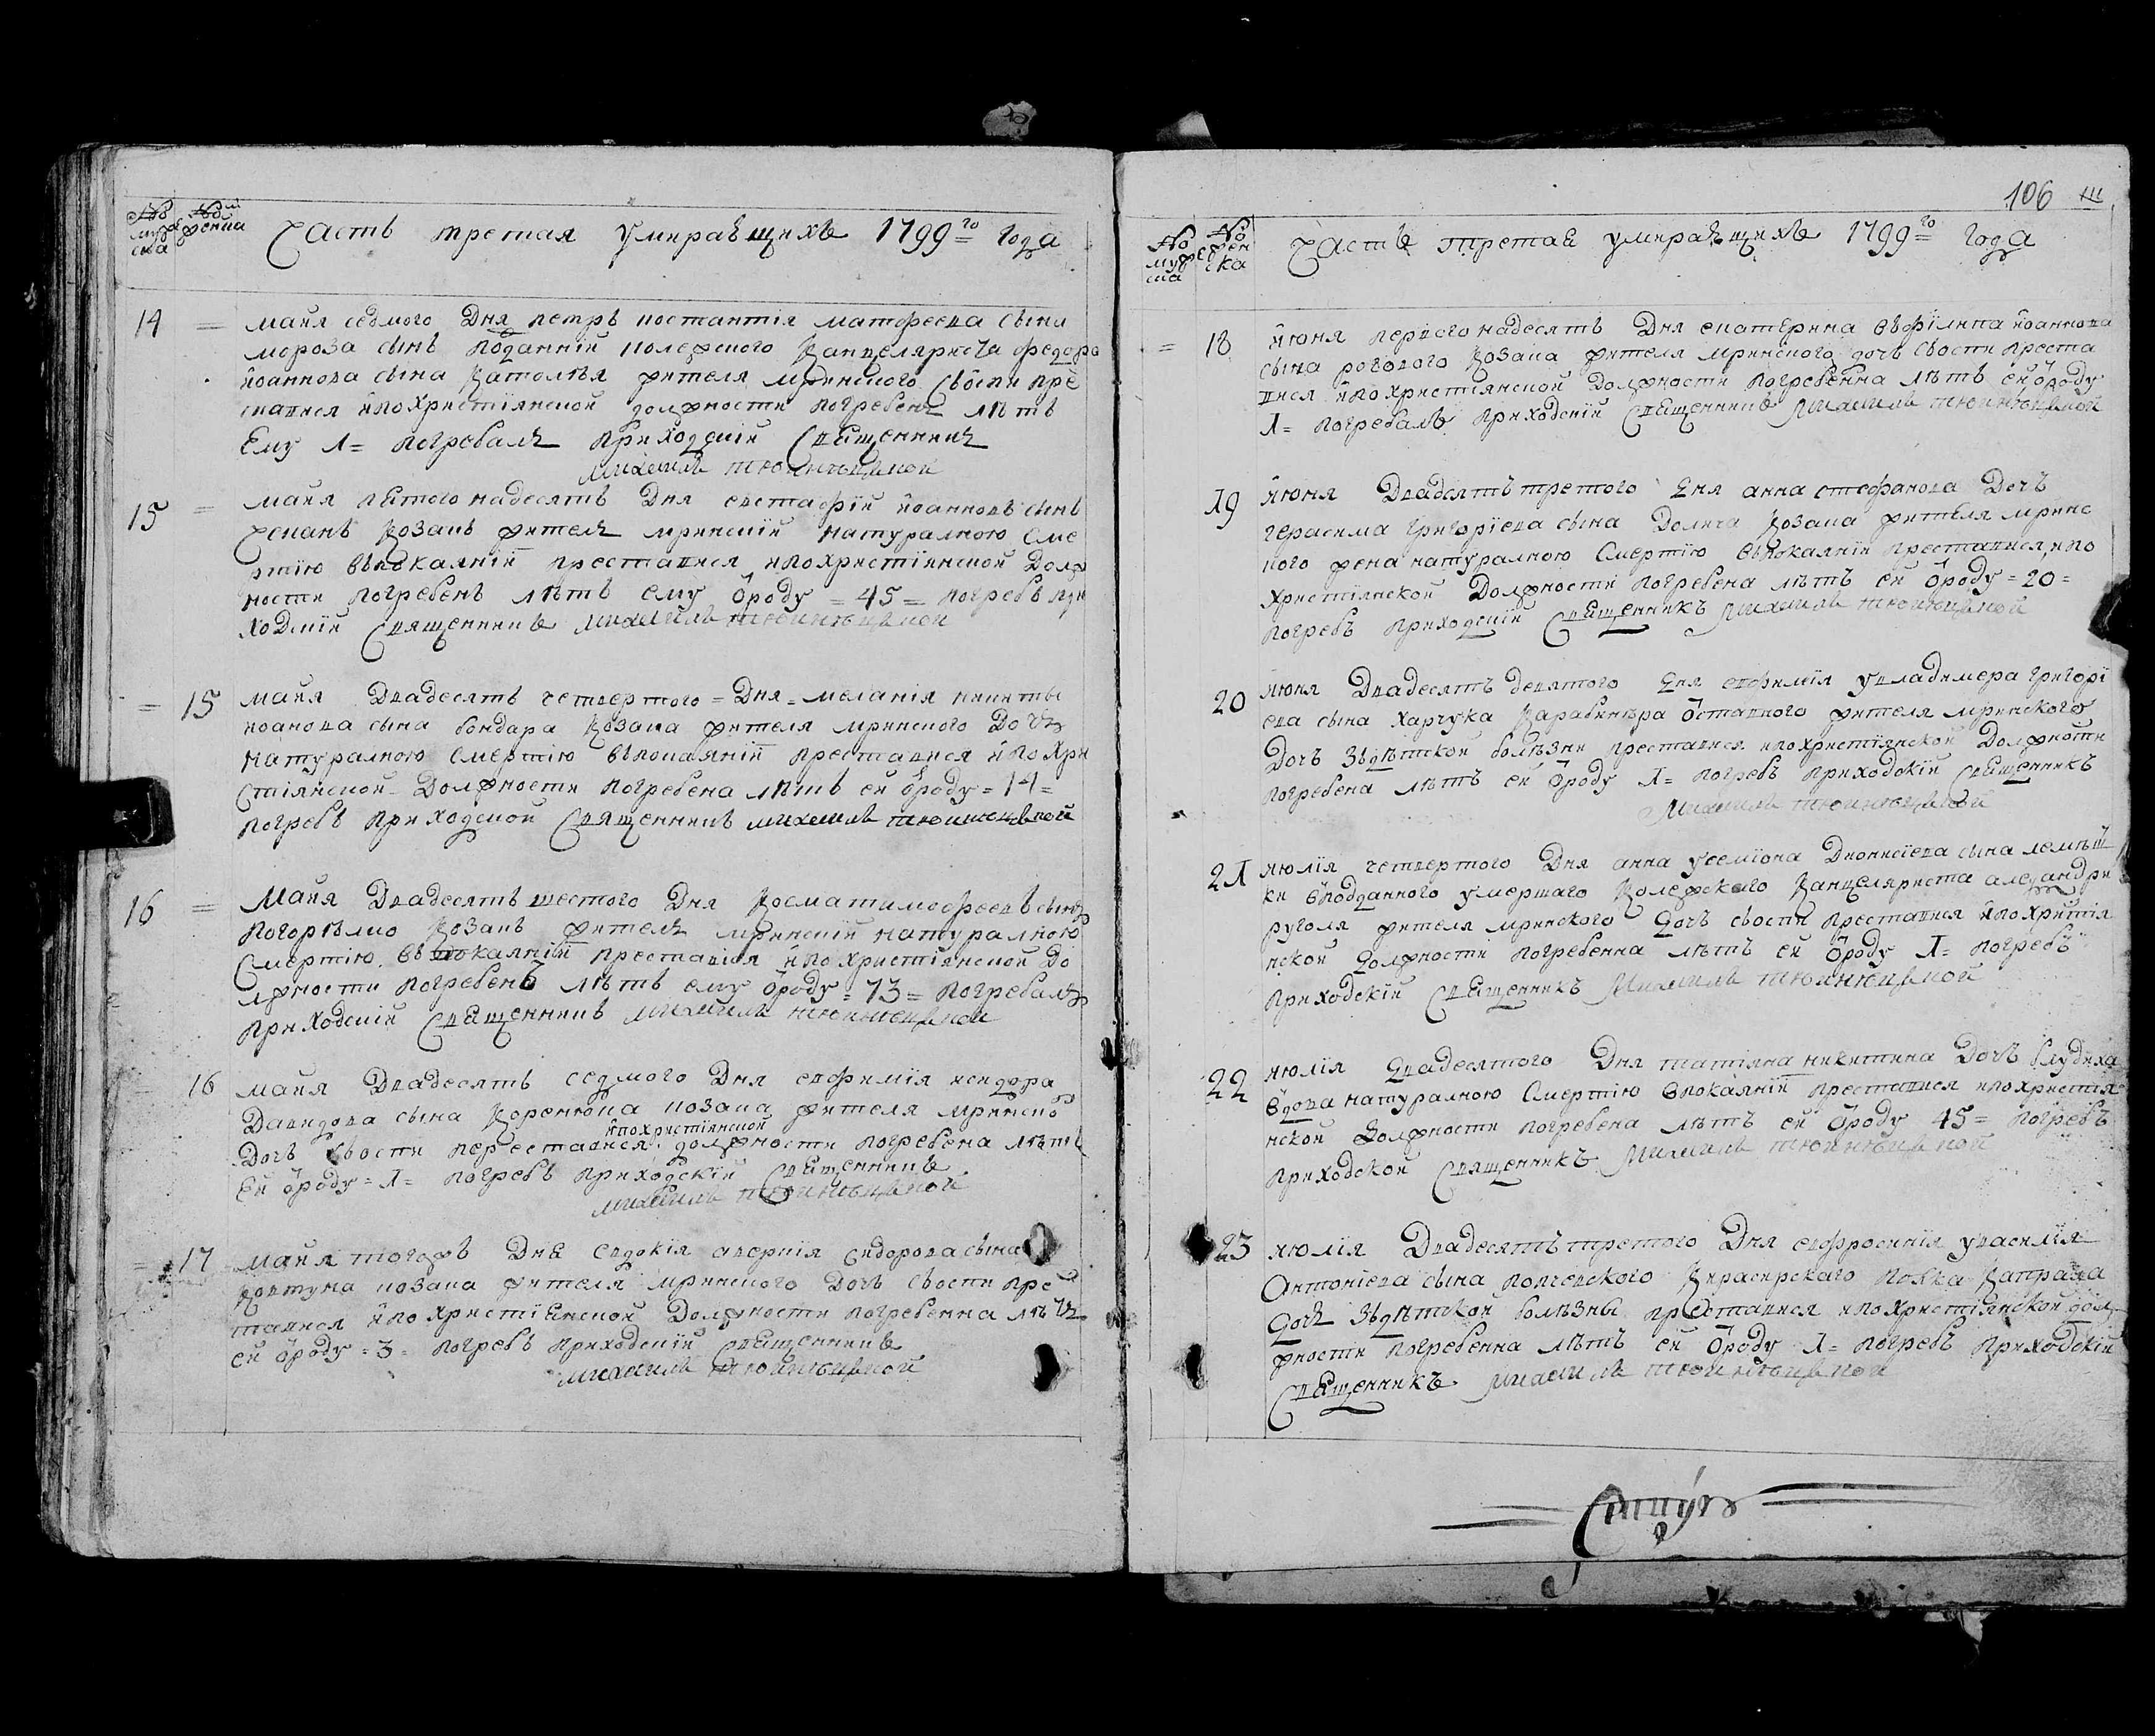 № мужеска
№ женска
Часть третая умираещихъ 1799го года
14 = майя седмого Дня петръ костантiя матфеева сына
мороза сынъ поданнiй колежского канцеляриста федора
иоаннова сына жителя мринского своспи пре
ставися и по христiянской должности погребенъ лѣтъ
Ему 1 = погребалъ приходскiй священникъ
михаилъ
15 = майя пятого надесять Дня евстафiй иоанновъ сынъ
козакъ жителъ мринскiй натуралною сме
ртiю въ покаянiи преставися и по христiянской долж
ности погребенъ лѣтъ ему ѿроду = 45 = погребъ при
ходскiй священникъ михаилъ
= 15 майя Двадесять четвертого = Дня = меланiя никиты
иоанова сына бондара козака жителя мринского Дочъ
натуралною смертiю въ покаянiи преставися и по хри
стiянской Должности погребена лѣтъ ей ѿроду = 14 =
погребъ приходской священникъ михаилъ
16 = Майя Двадесять шестого Дня косма тимофеевъ сынъ
погорѣлко козакъ жителъ мринскiй натуралною
смертiю въ покаянiи преставися и по христiянской до
лжности погребенъ лѣтъ ему ѿроду = 73 = погребалъ
приходскiй священникъ михаилъ
16 майя Двадесять седмого Дня евфимiя исидора
Давидова сына коренюка козака жителя мринско
и по христiянской
Дочъ своспи переставися должности погребена лѣтъ
Ей ѿроду = 1 = погребъ приходскiй священникъ
михаилъ
= 17 майя тогожъ Дня евдокiя аверкiя сидорова сына
ковтуна козака жителя мринского Дочъ своспи пре
тавися и по христiенской Должности погребенна лѣтъ
ей ѿроду = 3 = погребъ приходскiй священникъ
михаилъ
106
№ мужеска
№ женска
Часть третае умираещихъ 1799го года
= 18 июня первого надесять Дня екатерина въ филипа иоаннова
сына рогового козака жителя мринского дочъ своспи преста
вися и по христiянской Должности погребенна лѣтъ ей ѿроду
1 = погребалъ приходскiй священникъ михаилъ
19 июня Двадсять третого Дня анна стефанова Дочъ
герасима григорiева сына козака жителя мринс
кого жена натуралною смертiю въ покаянiи преставися и по
христiянской Должности погребена лѣтъ ей ѿроду = 20 =
погребъ приходскiй священникъ михаилъ
20 июня Двадесять девятого Дня евфимiя у владимера григорi
ева сына харчука карабинѣра ѿставного жителя мринского
Дочъ зъ дѣтской болѣзни преставися и по христiянской Должности
погребена лѣтъ ей ѿроду 1 = погребъ приходскiй священникъ
михаилъ
21 июлiя четвертого Дня анна у семiона Дионисiева сына лемѣш
ки въ подданного умершаго колежского канцеляриста
руголя жителя мринского дочъ своспи преставися и по христiя
нской должности погребенна лѣтъ ей ѿроду 1 = погребъ
приходскiй священникъ Михаилъ
22 июлiя Двадесятого Дня татiяна никитина Дочъ блудиха
вдова натуралною смертiю в покаянiи преставися и по христiя
нской Должности погребена лѣтъ ей ѿроду 45 = погребъ
приходской священникъ Михаилъ
23 июлiя Двадесять третого Дня евфросинiя у василiя
Антонiева сына кирасирского полка капрала
дочъ зъ дѣтской болѣзны преставися и по христiянской дол
жности погребенна лѣтъ ей ѿроду 1 = погребъ приходскiй
священникъ михаилъ